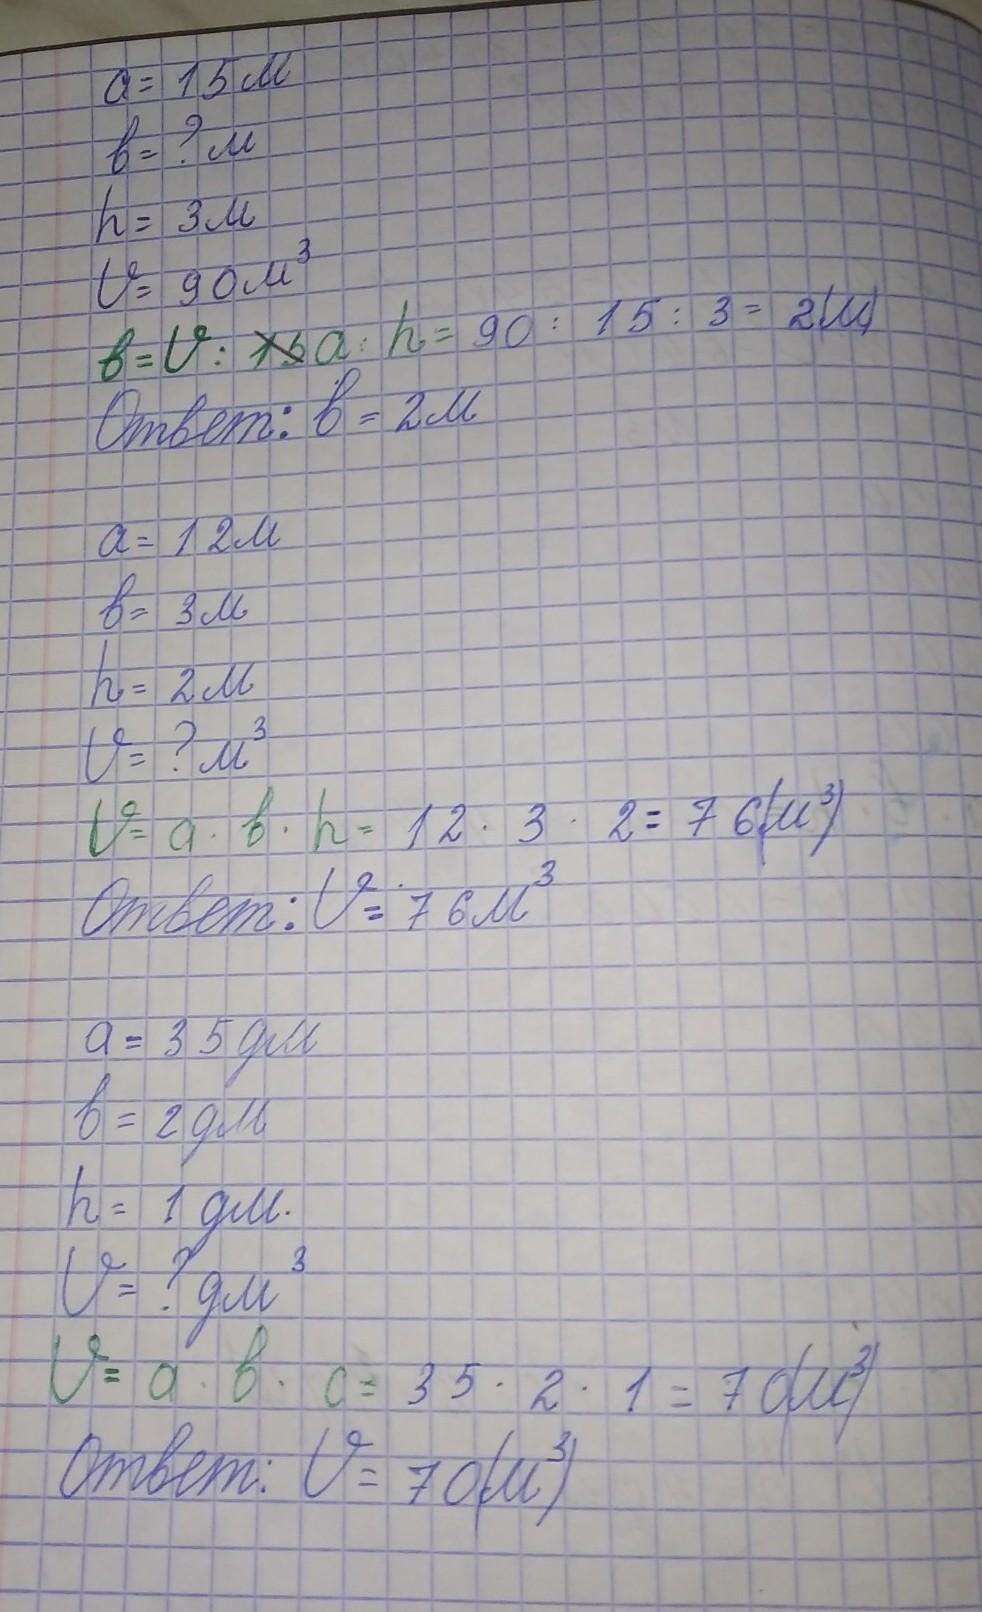 a = 15м
в = ? м
h = 3м
V = 90м³
в = V : a : h = 90 : 15 : 3 = 2(м)
Ответ: в = 2м
a = 12м
в = 3м
h = 2м
V = ? м³
V = a · в · h = 12 · 3 · 2 = 76(м³)
Ответ: V = 76м³
a = 35дм
в = 2дм
h = 1дм.
V = ? дм³
V = a · в · c = 35 · 2 · 1 = 70(м³)
Ответ: V = 70(м³)